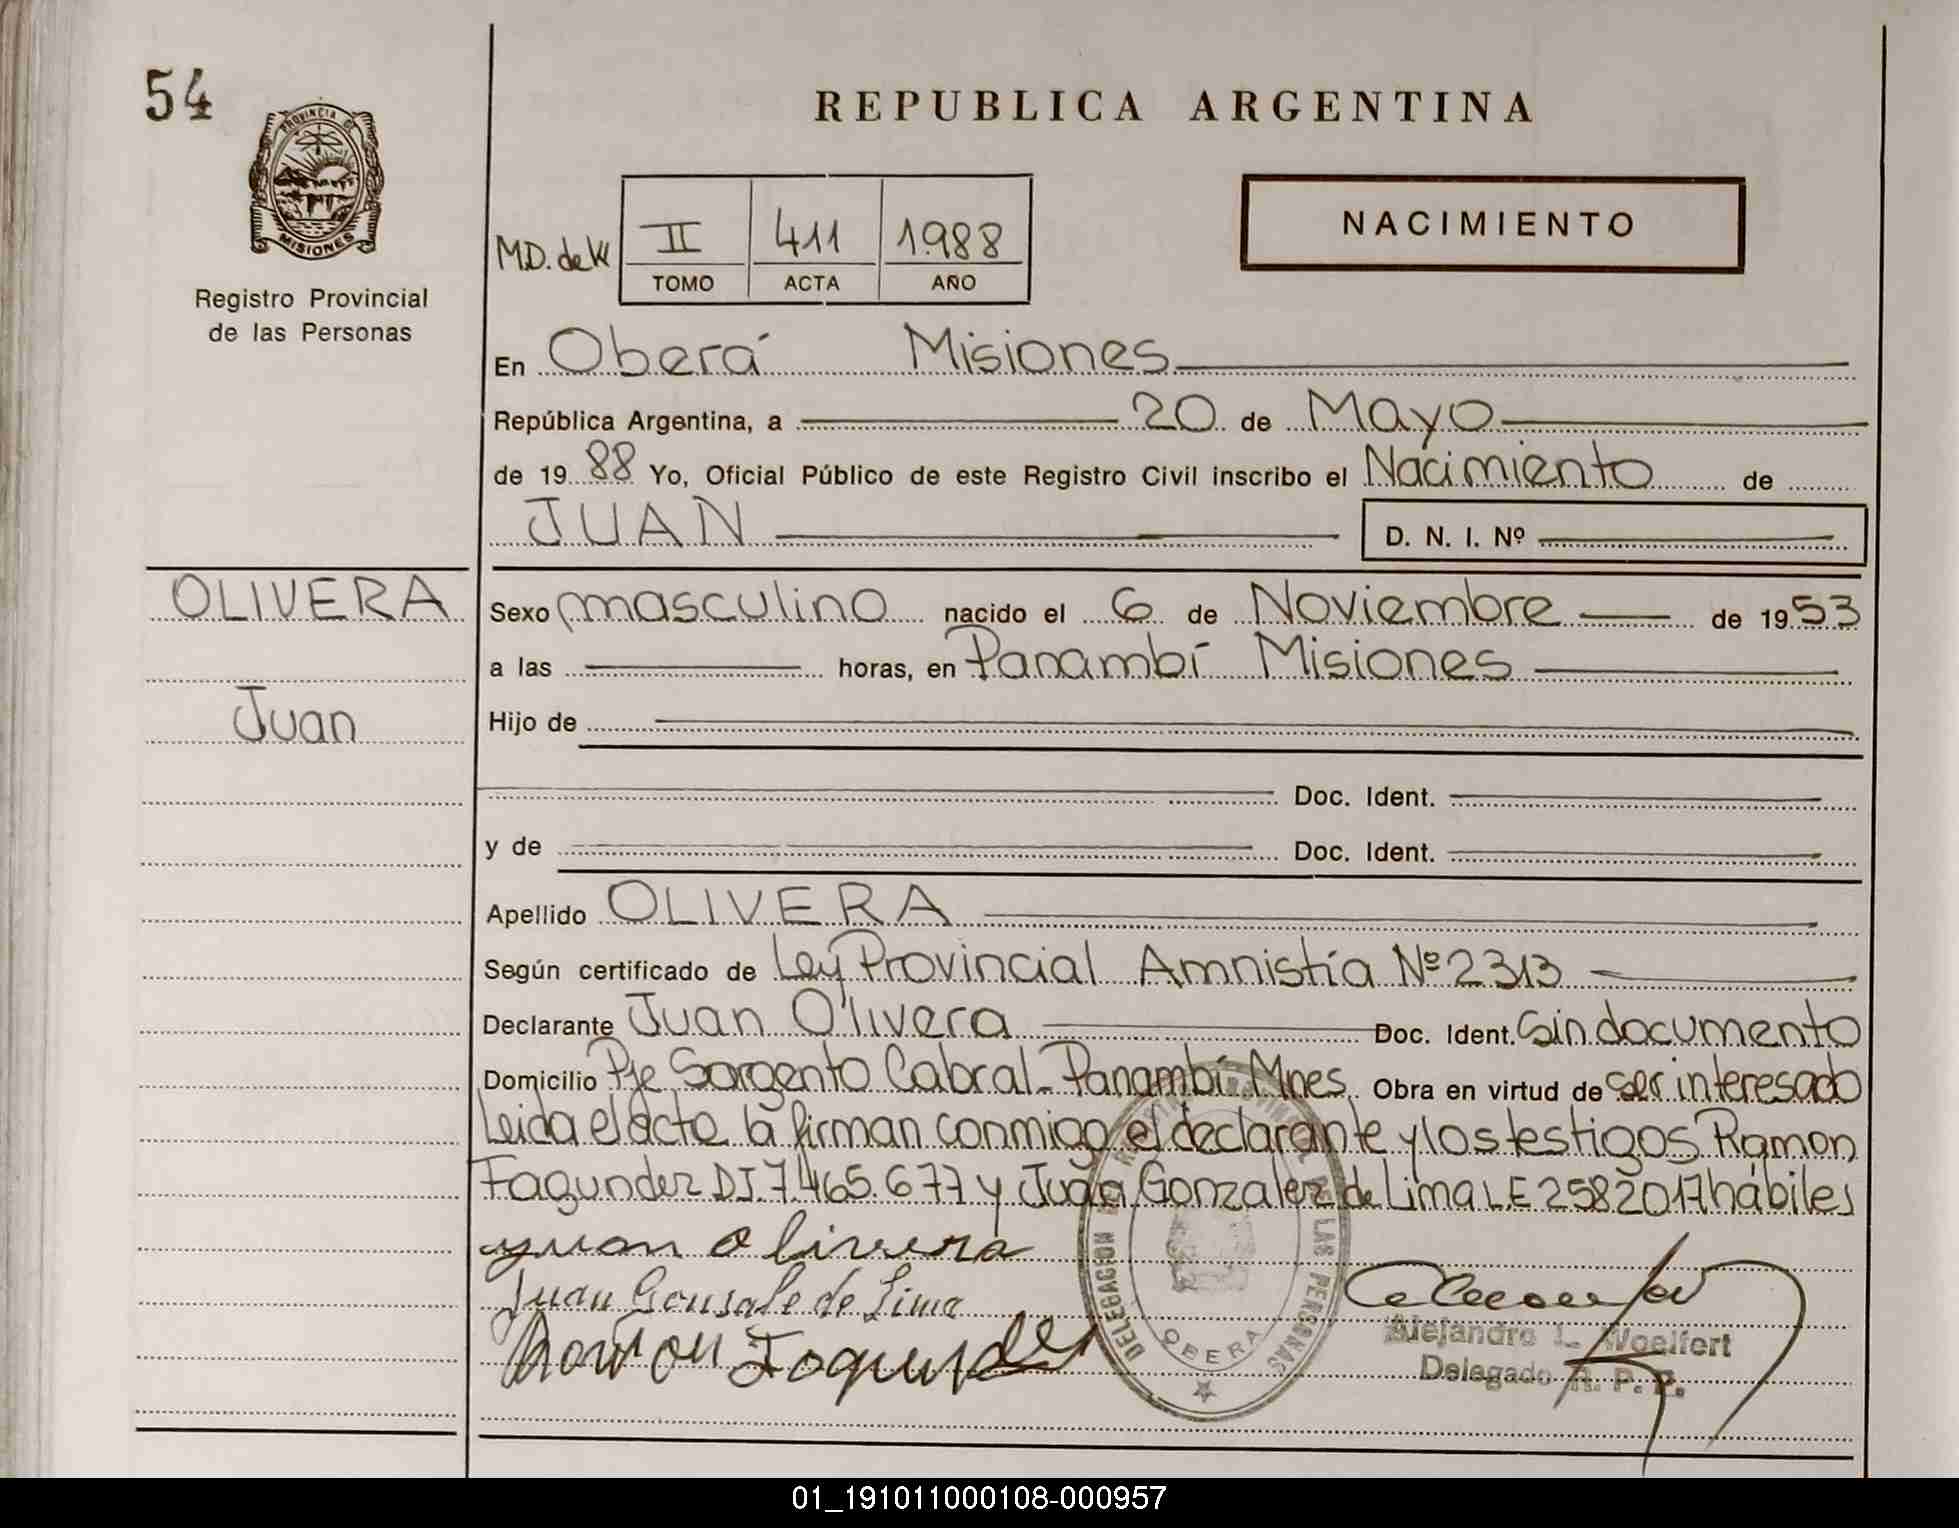 54
PROVINCIA DE
MISIONES
Registro Provincial
de las Personas
REPUBLICA ARGENTINA
M.D. de W
II 411 1.988
TOMO ACTA AÑO
NACIMIENTO
En Oberá Misiones
República Argentina, a 20 de Mayo
de 19 88 Yo, Oficial Público de este Registro Civil inscribo el Nacimiento de
JUAN D. N. I. Nº
OLIVERA
Juan
Sexo masculino nacido el 6 de Noviembre de 19 53
a las horas, en Panambí Misiones
Hijo de
Doc. Ident.
y de Doc. Ident.
Apellido OLIVERA
Según certificado de Ley Provincial Amnistía Nº 2313
Declarante Juan Olivera Doc. Ident. Sin documento
Domicilio Pje Sargento Cabral - Panambí Mnes. Obra en virtud de ser interesado
Leida el acta la firman conmigo el declarante y los testigos Ramon
Fagundez DI.7.465.677 y Juan Gonzalez de Lima L.E 2582017 hábiles
Juan olivera
Juan Gonsale de Lima
Ramon Fagundez
DELEGACION LAS PERSONAS
OBERA
Alejandro L. Woelfert
Delegado R. P. P.
01_191011000108-000957